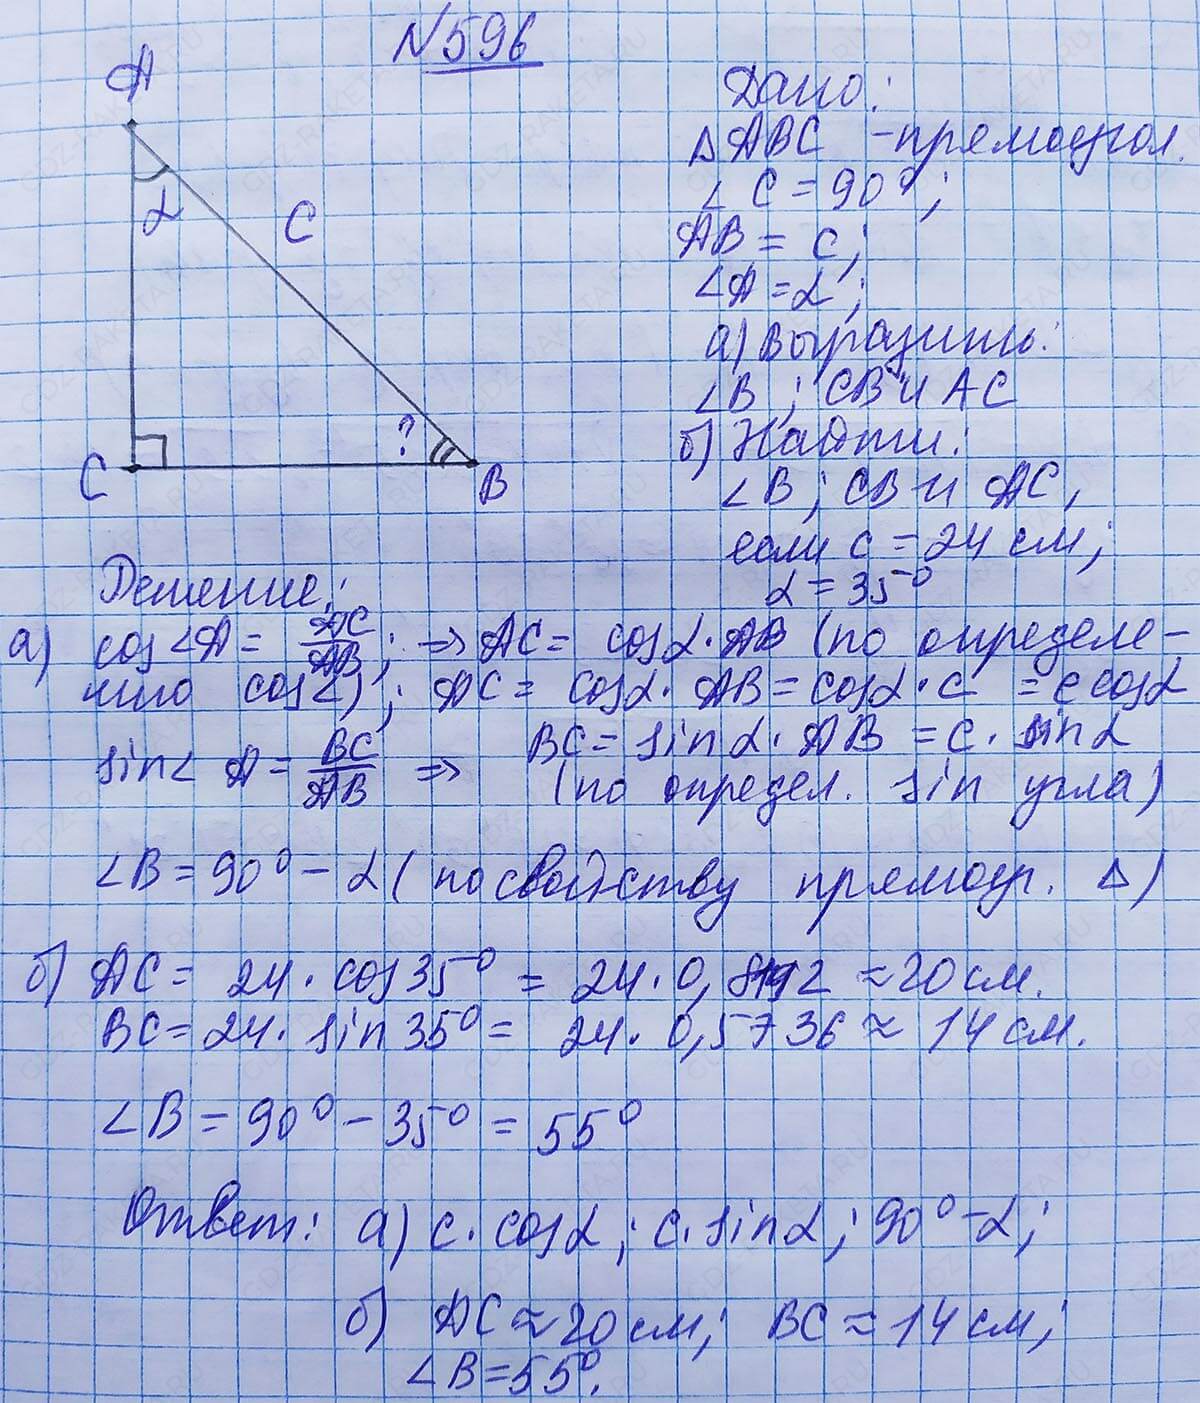 №596
A
α
C
?
C
B
Дано:
△ABC - прямоугол.
∠C = 90°;
AB = c;
∠A = α;
а) Выразить:
∠B; CB и AC
б) Найти:
∠B; CB и AC,
если c = 24 см;
α = 35°
Решение:
а) cos∠A = AC/AB; => AC = cosα · AB (по определе-
нию cos∠); AC = cosα · AB = cosα · c = c cosα
sin∠A = BC/AB => BC = sinα · AB = c · sinα
(по определ. sin угла)
∠B = 90° - α (по свойству прямоуг. △)
б) AC = 24 · cos35° = 24 · 0,8192 ≈ 20 см.
BC = 24 · sin35° = 24 · 0,5736 ≈ 14 см.
∠B = 90° - 35° = 55°
Ответ: а) c · cosα; c · sinα; 90° - α;
б) AC ≈ 20 см; BC ≈ 14 см;
∠B = 55°.